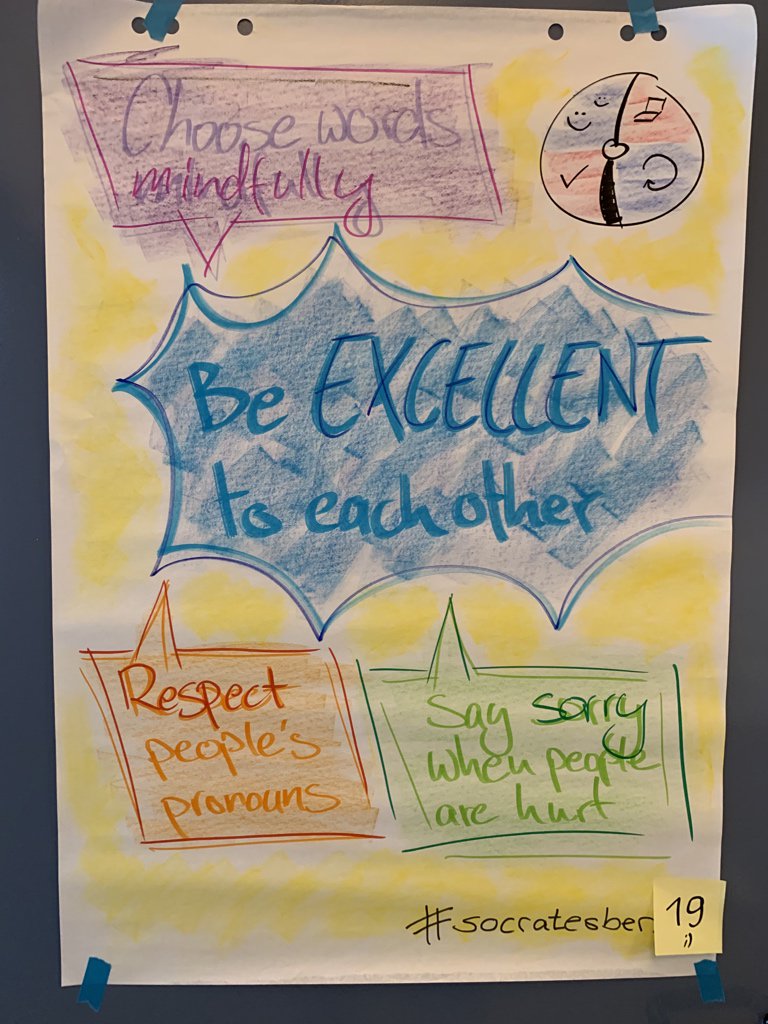 Choose words
mindfully
Be EXCELLENT
to each other
Respect
people's
pronouns
Say sorry
when people
are hurt
#socratesber
19
;)